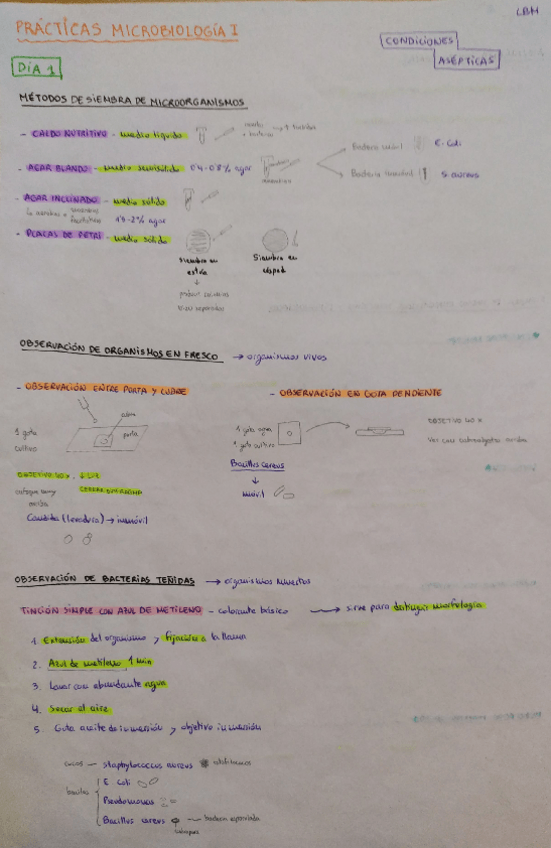 LBM
PRÁCTICAS MICROBIOLOGÍA I
CONDICIONES
ASÉPTICAS
DÍA 1
MÉTODOS DE SIEMBRA DE MICROORGANISMOS
- CALDO NUTRITIVO - medio líquido
- AGAR BLANDO - medio semisólido 0'4-0'8% agar
Bacteria móvil E. Coli
Bacteria inmóvil S. aureus
- AGAR INCLINADO - medio sólido
1'5-2% agar
- PLACAS DE PETRI - medio sólido
Siembra en
estría
Siembra en
césped
OBSERVACIÓN DE ORGANISMOS EN FRESCO → organismos vivos
- OBSERVACIÓN ENTRE PORTA Y CUBRE
- OBSERVACIÓN EN GOTA PENDIENTE
cubre
porta
1 gota
cultivo
1 gota agua
1 gota cultivo
OBJETIVO 40 x
OBJETIVO 40 x, ↓ luz
CERRAR DIAFRAGMA
Bacillus cereus
↓
móvil
Candida (levadura) → inmóvil
OBSERVACIÓN DE BACTERIAS TEÑIDAS → organismos muertos
TINCIÓN SIMPLE CON AZUL DE METILENO - colorante básico → sirve para distinguir morfología
1. Extensión del organismo y fijación a la llama
2. Azul de metileno, 1 min
3. Lavar con abundante agua
4. Secar al aire
5. Gota aceite de inmersión y objetivo inmersión
cocos - staphylococcus aureus
bacilos
E coli
Pseudomonas
Bacillus cereus → bacteria esporulada